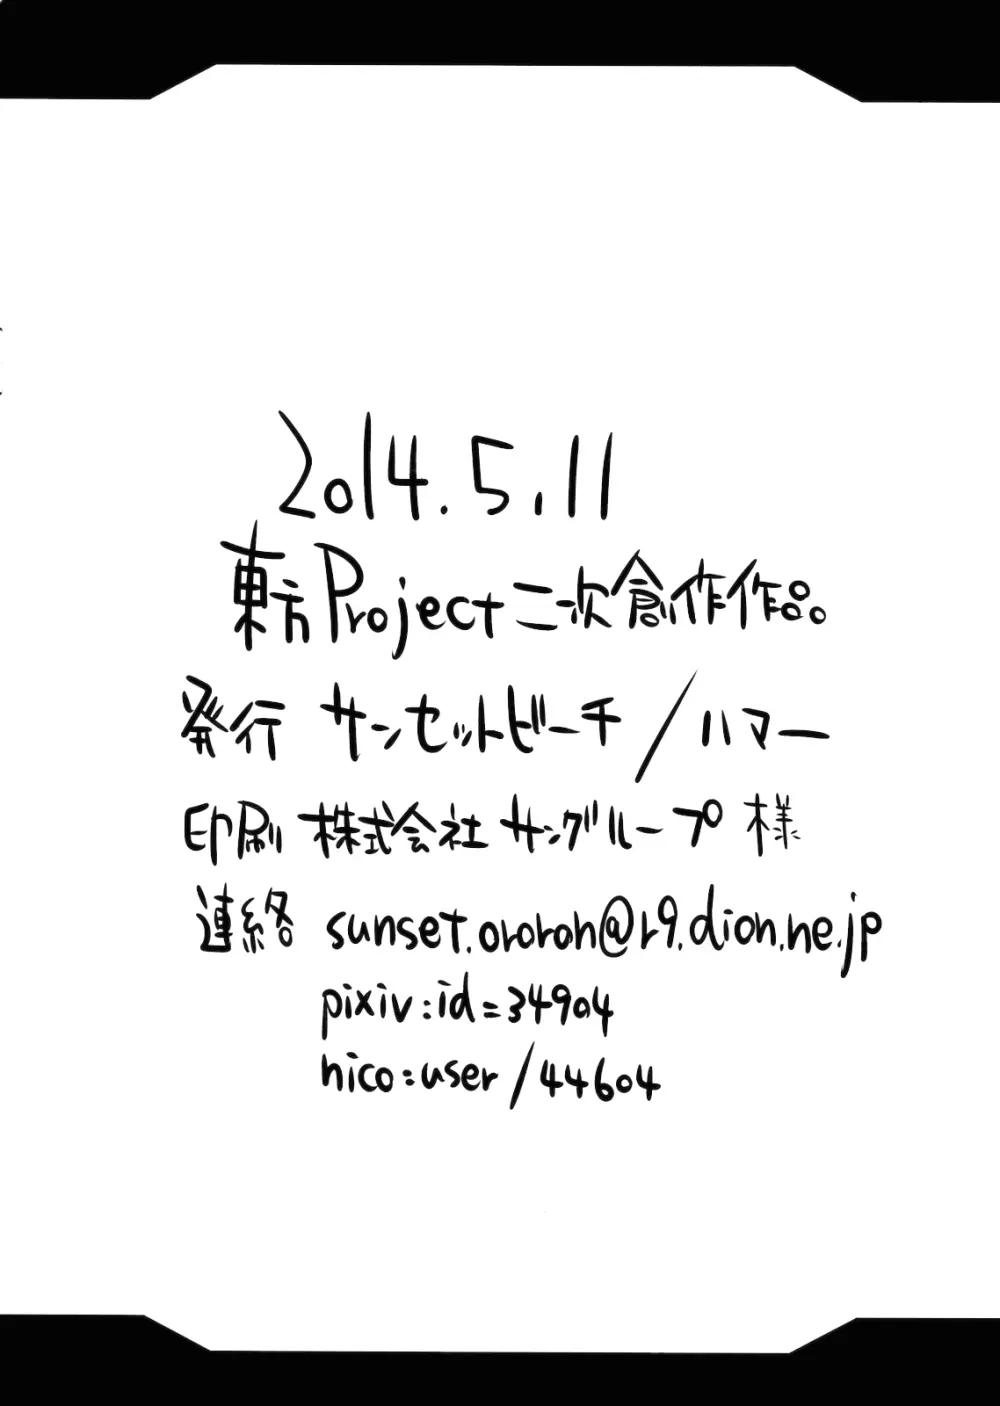 2014.5.11
東方Project二次創作作品。
発行 サンセットビーチ/ハマー
印刷 株式会社 サングループ 様
連絡 sunset.ororon@r9.dion.ne.jp
pixiv:id=34904
nico:user/44604